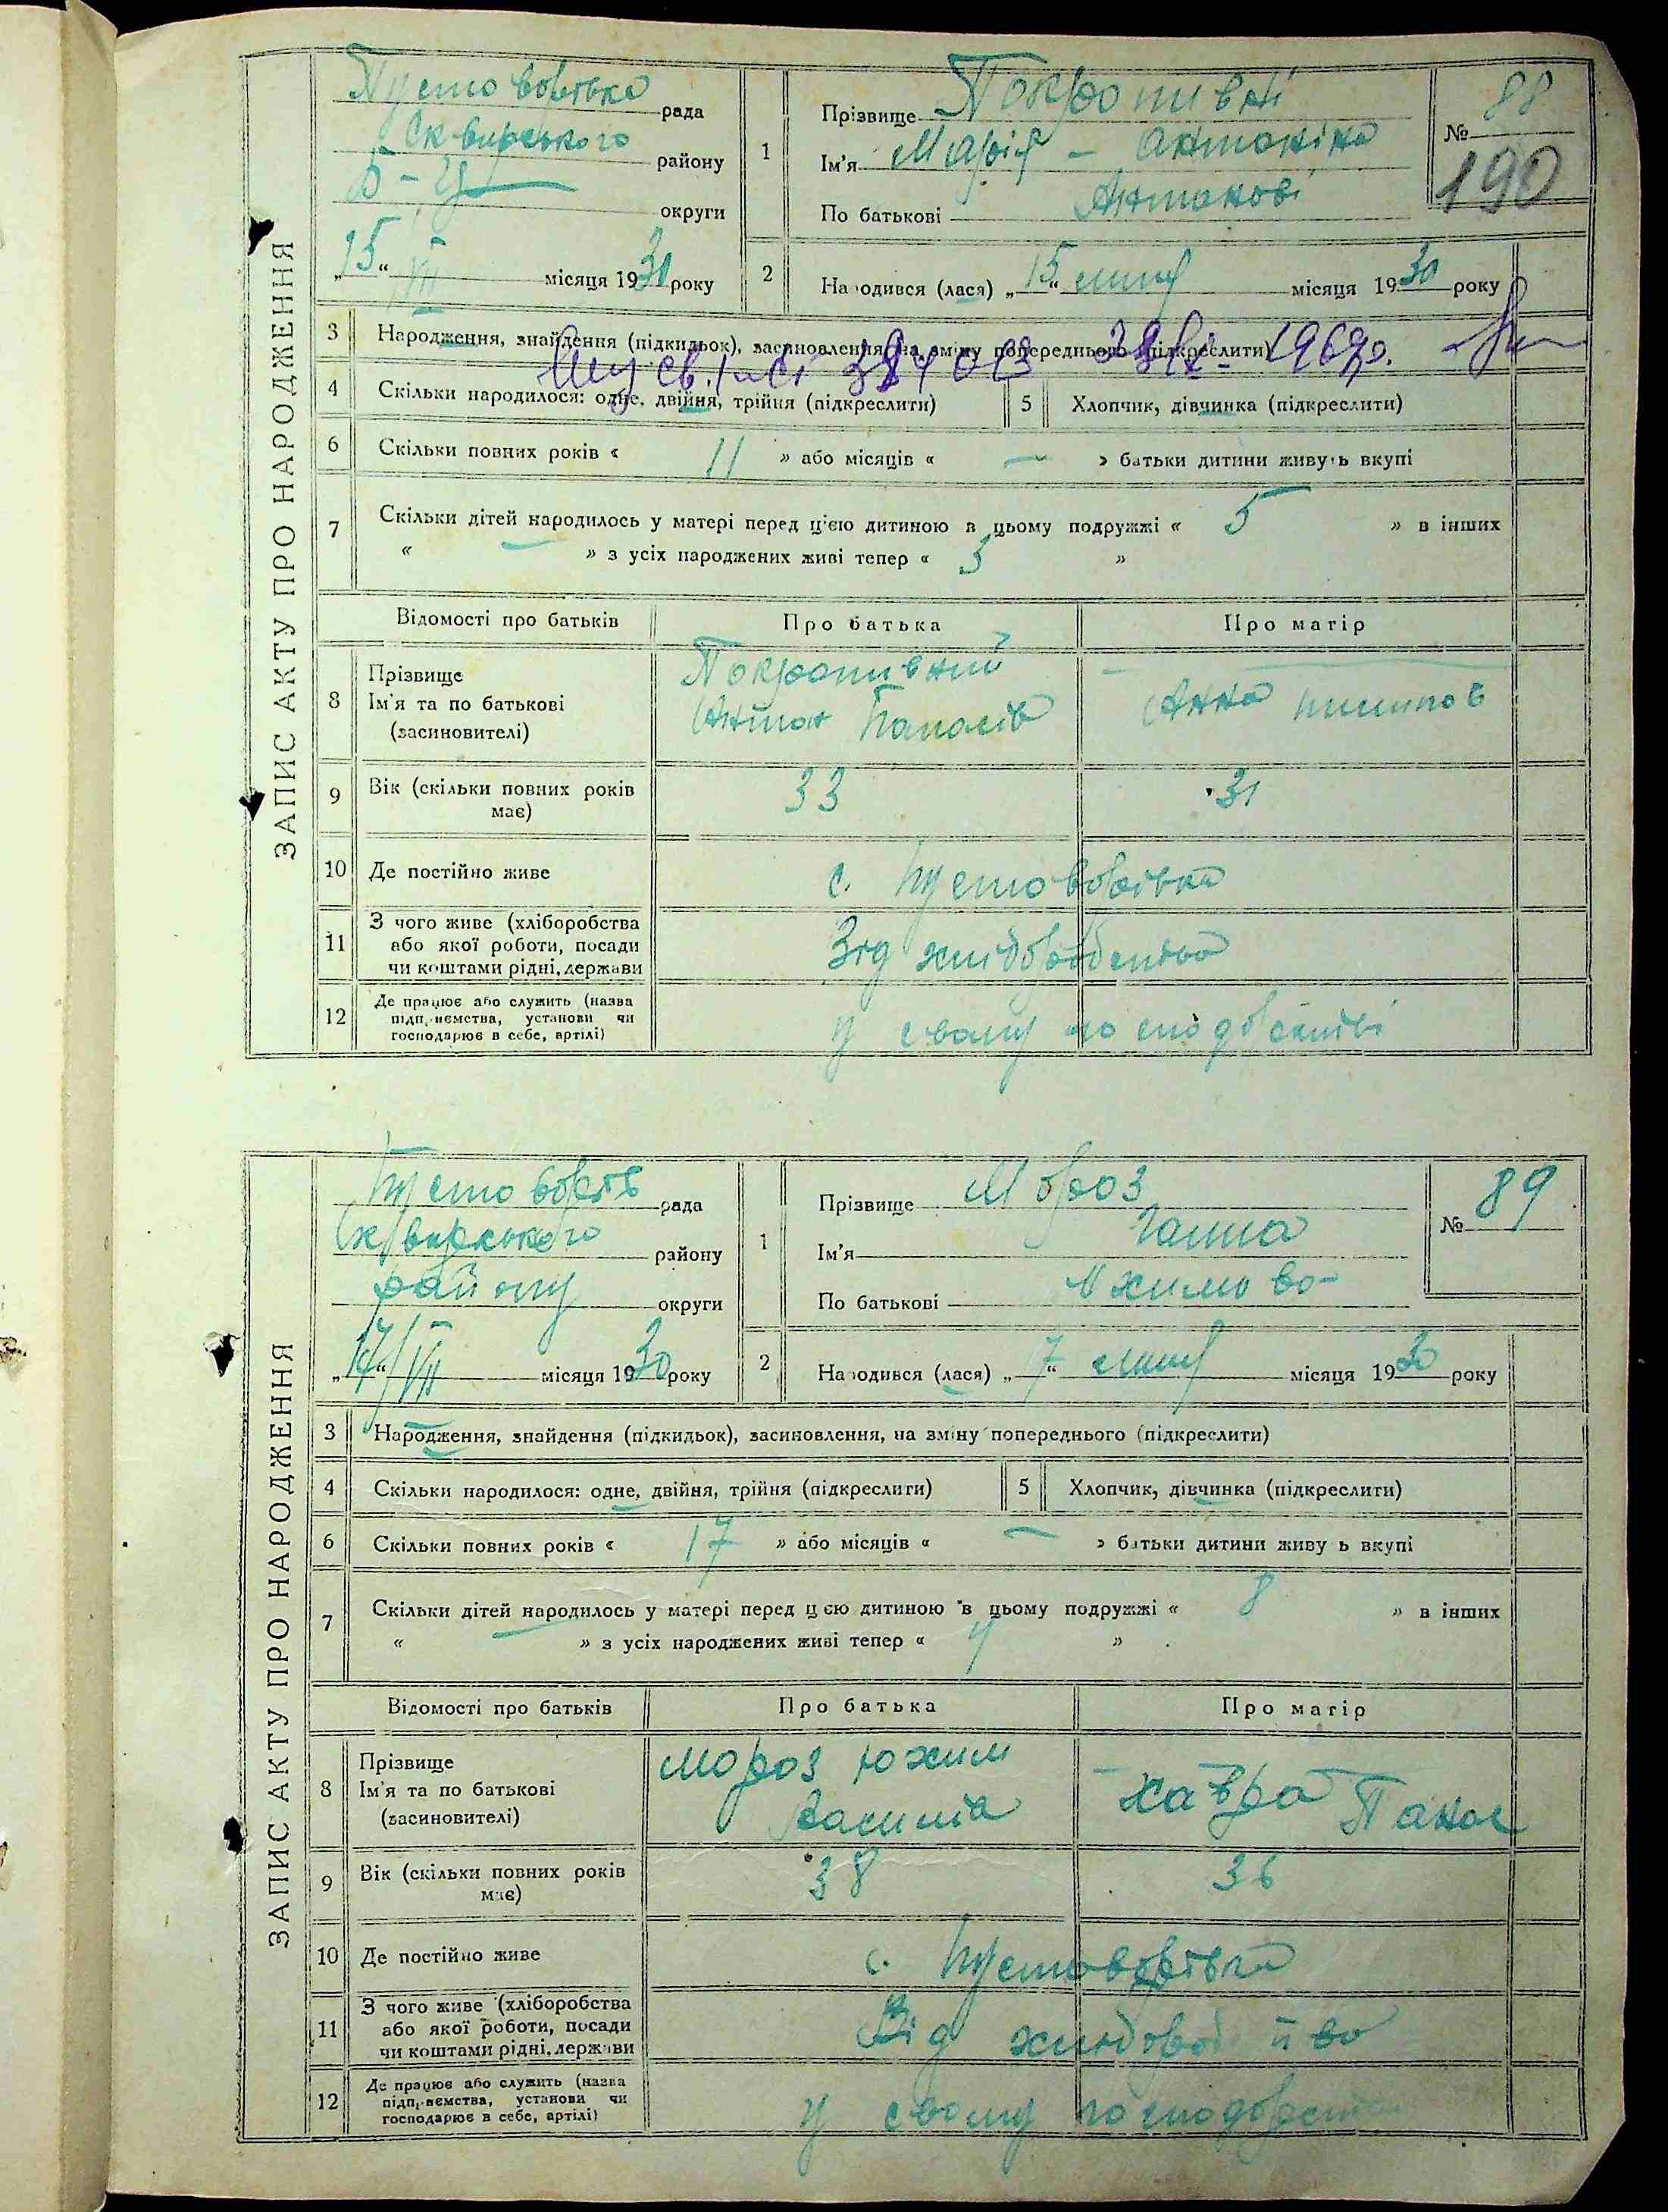 ЗАПИС АКТУ ПРО НАРОДЖЕННЯ
Пустоварівка рада
Сквирського району
Б-Ц округи
„15“ VII місяця 1930 року
1
Прізвище Покропивні
Ім'я Марія - Антоніна
По батькові Антонові
№ 88
190
2
Народився (лася) „15“ липця місяця 1930 року
3 Народження, знайдення (підкидьок), засиновлення, на зміну попереднього (підкреслити)
384013 1969р.
4 Скільки народилося: одне, двійня, трійня (підкреслити) 5 Хлопчик, дівчинка (підкреслити)
6 Скільки повних років « 11 » або місяців « — » батьки дитини живуть вкупі
7 Скільки дітей народилось у матері перед цією дитиною в цьому подружжі « 5 » в інших
« — » з усіх народжених живі тепер « 5 »
Відомості про батьків Про батька Про матір
8 Прізвище
Ім'я та по батькові
(засиновителі)
Покропивний
Антон Панасів
— Анна Пилипов
9 Вік (скільки повних років має) 33 31
10 Де постійно живе с. Пустоварівка
11 З чого живе (хліборобства
або якої роботи, посади
чи коштами рідні, держави
Від хліборобства
12 Де працює або служить (назва
підприємства, установи чи
господарює в себе, артілі)
У свому господарстві
ЗАПИС АКТУ ПРО НАРОДЖЕННЯ
Пустоварів рада
Сквирського району
району округи
„17“ VII місяця 1930 року
1
Прізвище Мороз
Ім'я Ганна
По батькові Юхимово-
№ 89
2
Народився (лася) „7“ липця місяця 1930 року
3 Народження, знайдення (підкидьок), засиновлення, на зміну попереднього (підкреслити)
4 Скільки народилося: одне, двійня, трійня (підкреслити) 5 Хлопчик, дівчинка (підкреслити)
6 Скільки повних років « 17 » або місяців « — » батьки дитини живуть вкупі
7 Скільки дітей народилось у матері перед цією дитиною в цьому подружжі « 8 » в інших
« — » з усіх народжених живі тепер « 4 »
Відомості про батьків Про батька Про матір
8 Прізвище
Ім'я та по батькові
(засиновителі)
Мороз Юхим
Василів
— Хавра Панас
9 Вік (скільки повних років має) 38 36
10 Де постійно живе с. Пустоварівка
11 З чого живе (хліборобства
або якої роботи, посади
чи коштами рідні, держави
Від
12 Де працює або служить (назва
підприємства, установи чи
господарює в себе, артілі)
у свому господарстві